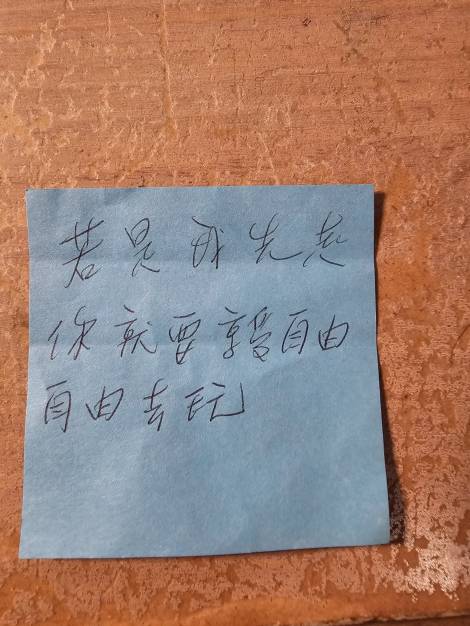 若是我先走
你就要享受自由
自由去玩